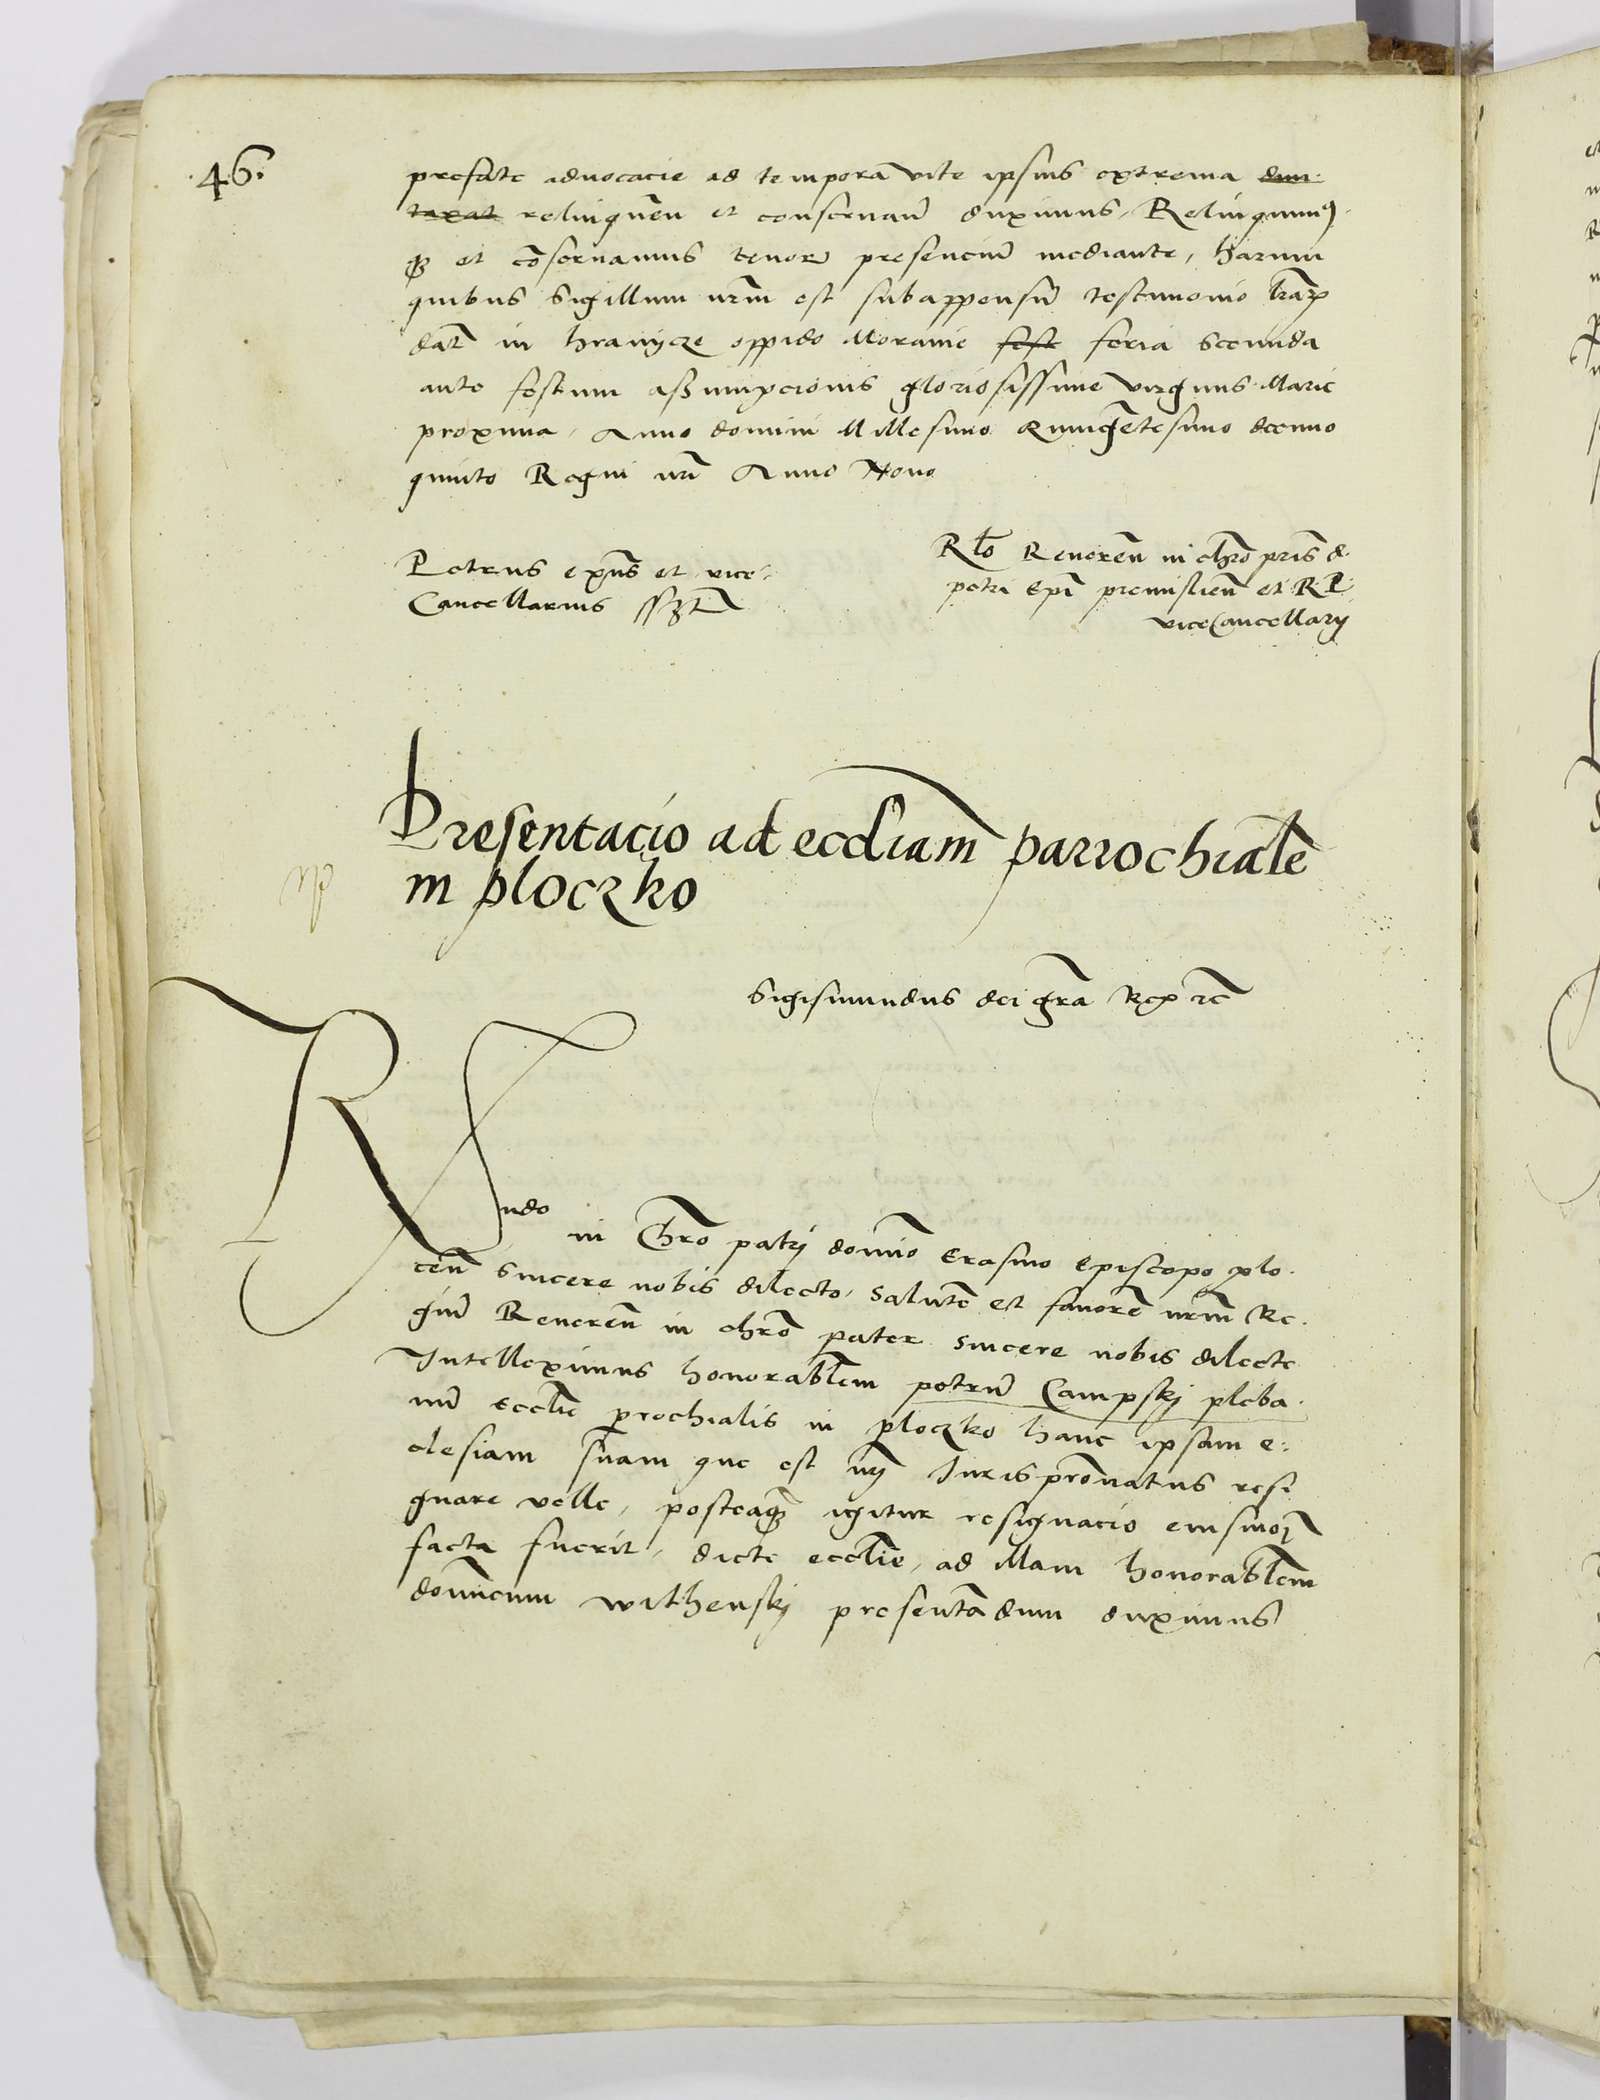 46.
prefate advocacie ad tempora vite ipsius extrema dum-
taxat relinquen et conservanᵈ duximus, Relinquimus-
qȝ et cōservamus tenore presenciuᵐ mediante, harum
quibus Sigillum nrm̄ est subappensum testimonio lrar̄
dat̄ in hranijcze oppido Moravie fest feria secunda
ante festum assumpcionis gloriosissime virginis Marie
proxima, Anno domini Millesimo Quingētesimo decimo
quinto Regni nr̄i Anno Nono
Petrus epus̄ et vice-
Cancellarius sszt̄
Rlo Reveren̄ in chro pris̄ d.
petri Epī premislien̄ et R P
viceCancellarij
Presentacio ad eccliam̄ parrochialē
in ploczko
Sigismundus dei gr̄a Rex ꝛc̄
Rndo
in Chr̄o patrj domīo Erasmo Episcopo plo-
cen̄ sincere nobis dilecto, Salutē et favorē nrm̄ Re-
giuᵐ Reveren̄ in chr̄o pater sincere nobis dilecte
Intelleximus honorablēm petruᵐ Campskj pleba-
nuᵐ ecclīe prochialis in ploczko hanc ipsam e-
clesiam suam que est nrj̄ Juris prōnatus resi
gnare velle, posteaqȝ̄ igitur resignacio eiusmoj̄
facta fuerit, dicte ecclīe, ad illam honorablēm
domīcum withenskj presentandum duximus